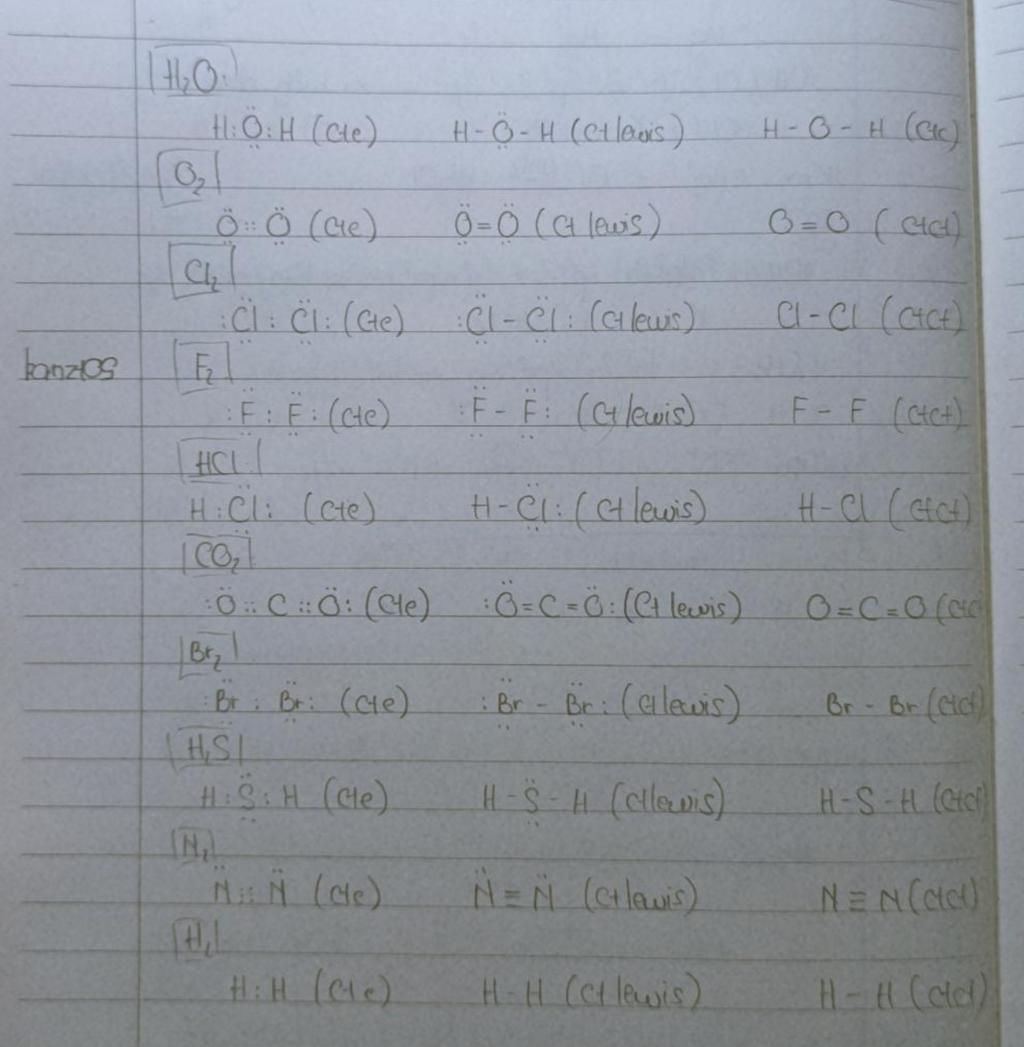 H₂O:
H:Ö:H (Cte) H-Ö-H (Ct lewis) H-O-H (Ctc)
O₂
Ö::Ö (Cte) Ö=Ö (Ct lewis) O=O (Ctct)
Cl₂
:C̈l:C̈l: (Cte) :C̈l-C̈l: (Ct lewis) Cl-Cl (Ctct)
F₂
:F̈:F̈: (Cte) :F̈-F̈: (Ct lewis) F-F (Ctct)
HCl
H:C̈l: (Cte) H-C̈l: (Ct lewis) H-Cl (Ctct)
CO₂
:Ö::C::Ö: (Cte) :Ö=C=Ö: (Ct lewis) O=C=O (Ctc
Br₂
:B̈r:B̈r: (Cte) :B̈r-B̈r: (Ct lewis) Br-Br (Ctct)
H₂S
H:S̈:H (Cte) H-S̈-H (Ct lewis) H-S-H (Ctct)
N₂
N̈:::N̈ (Cte) N̈≡N̈ (Ct lewis) N≡N (Ctct)
H₂
H:H (Cte) H-H (Ct lewis) H-H (Ctct)